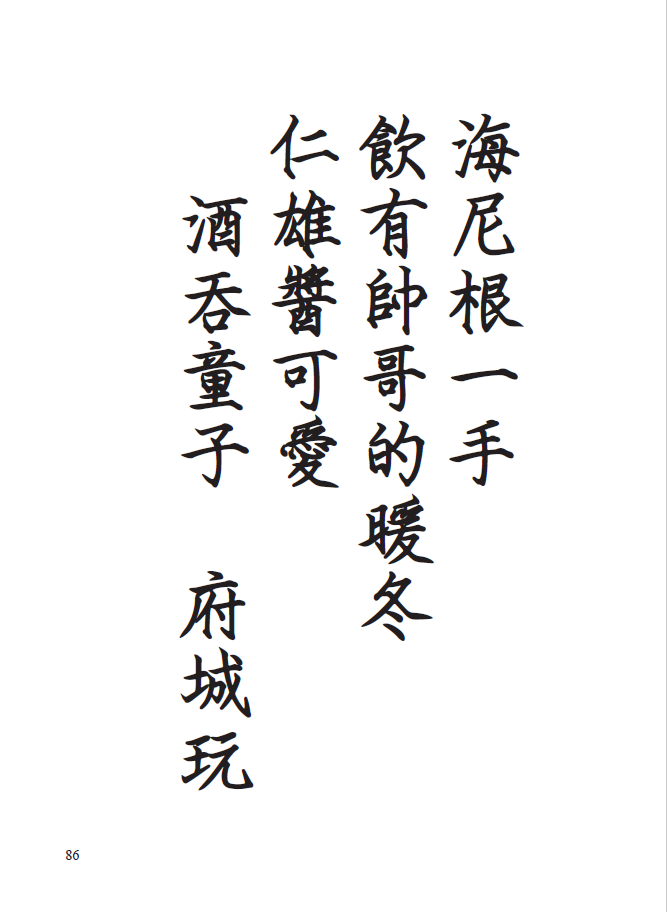 海尼根一手
飲有帥哥的暖冬
仁雄醬可愛
酒吞童子　府城玩
86